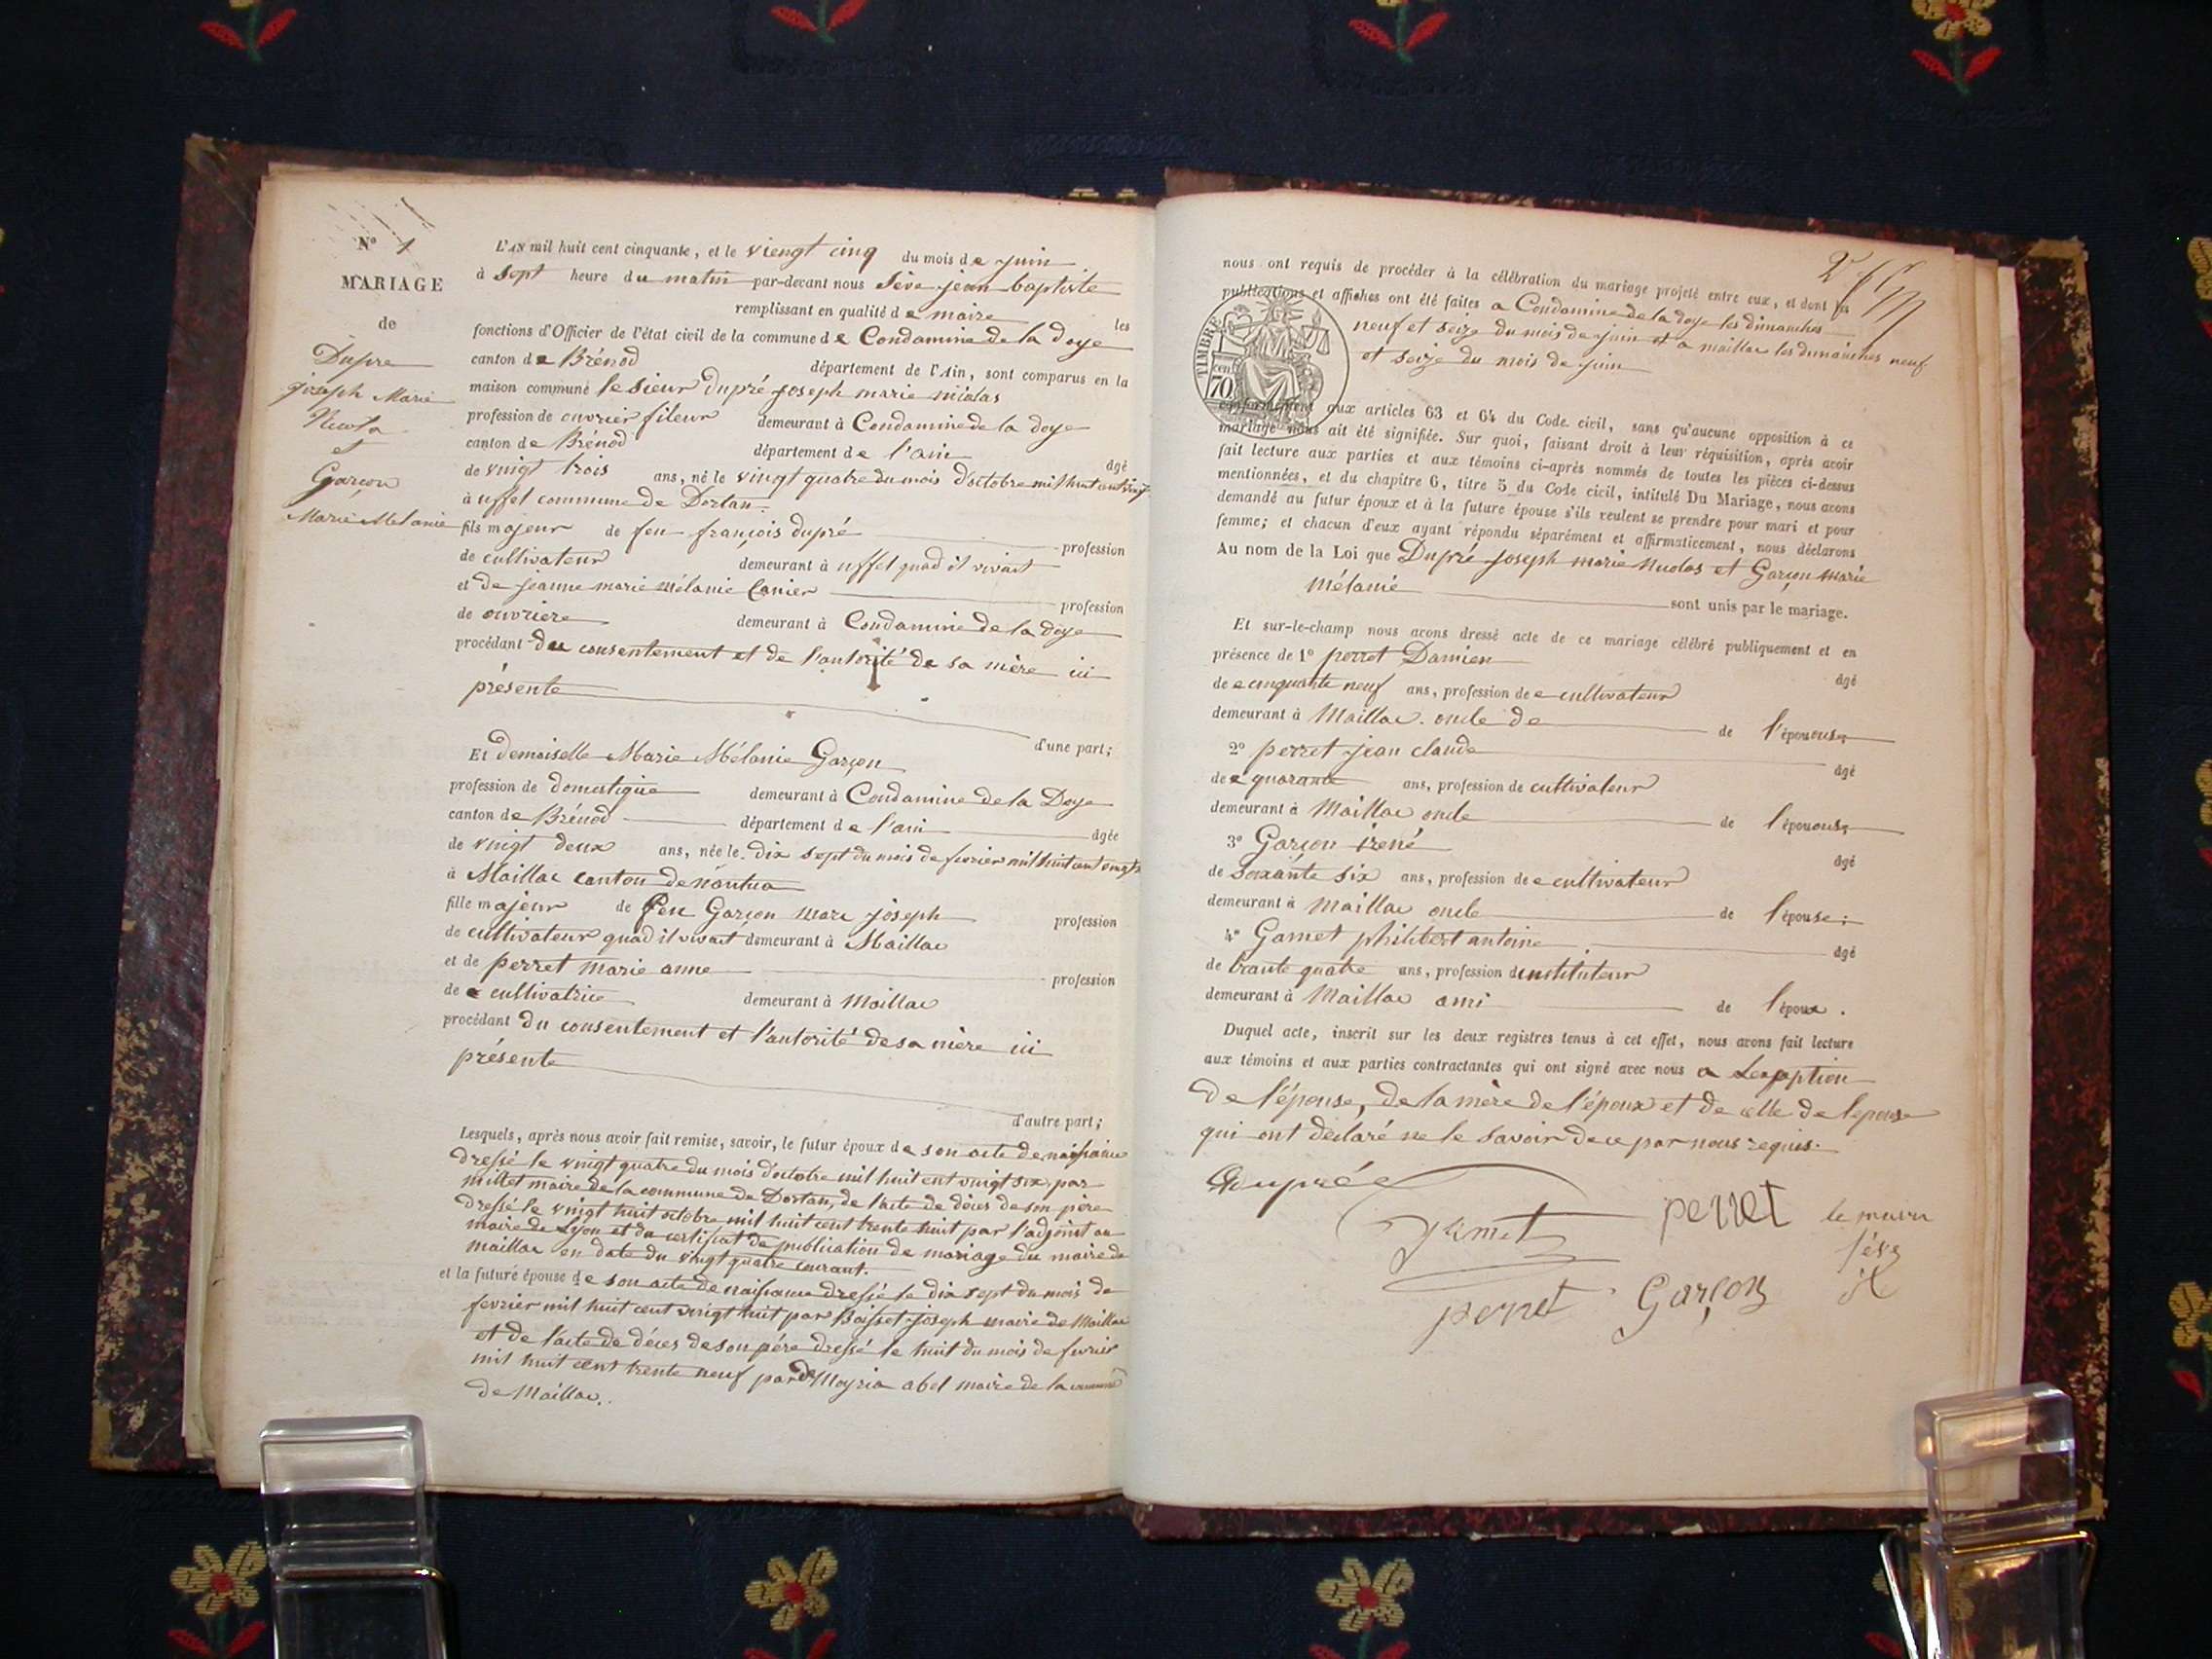 N° 1
MARIAGE
de
Dupre
joseph Marie
Nicolas
et
Garçon
Marie Melanie
L'AN mil huit cent cinquante, et le viengt cinq du mois de juin
à sept heure du matin par-devant nous Sève jean baptiste
remplissant en qualité de maire les
fonctions d'Officier de l'état civil de la commune de Condamine de la doye
canton de Brénod département de l'Ain, sont comparus en la
maison commune le sieur dupré joseph marie nicolas
profession de ouvrier fileur demeurant à Condamine de la doye
canton de Brénod département de l'ain âgé
de vingt trois ans, né le vingt quatre du mois d'octobre mil huit cent vingt
à uffel commune de Dortan
fils majeur de feu françois dupré profession
de cultivateur demeurant à uffel quad il vivait
et de jeanne marie mélanie profession
de ouvriere demeurant à Condamine de la doye
procédant du consentement et de l'autorité de sa mère ici
présente
d'une part;
Et demoiselle Marie Mélanie Garçon
profession de domestique demeurant à Condamine de la Doye
canton de Brénod département de l'ain âgée
de vingt deux ans, née le dix sept du mois de fevrier mil huit cent vingt
à Maillac canton de nantua
fille majeur de feu Garçon marc joseph profession
de cultivateur quad il vivait demeurant à Maillac
et de perret marie anne profession
de cultivatrice demeurant à Maillac
procédant du consentement et l'autorité de sa mère ici
présente
d'autre part;
Lesquels, après nous avoir fait remise, savoir, le futur époux de son acte de naissance
dressé le vingt quatre du mois d'octobre mil huit cent vingt six par
millet maire de la commune de Dortan, de l'acte de décès de son père
dressé le vingt huit octobre mil huit cent trente huit par l'adjoint au
maire de Lyon et du certificat de publication de mariage du maire de
maillac en date du vingt quatre courant.
et la future épouse de son acte de naissance dressé le dix sept du mois de
fevrier mil huit cent vingt huit par Boisset joseph maire de Maillac
et de l'acte de décès de son père dressé le huit du mois de fevrier
mil huit cent trente neuf par de Moyria abel maire de la commune
de Maillac.
nous ont requis de procéder à la célébration du mariage projeté entre eux, et dont les
publications et affiches ont été faites a Condamine de la doye les dimanches
neuf et seize du mois de juin et a maillac les dimanches neuf
et seize du mois de juin
TIMBRE
70
conformément aux articles 63 et 64 du Code civil, sans qu'aucune opposition à ce
mariage nous ait été signifiée. Sur quoi, faisant droit à leur réquisition, après avoir
fait lecture aux parties et aux témoins ci-après nommés de toutes les pièces ci-dessus
mentionnées, et du chapitre 6, titre 5 du Code civil, intitulé Du Mariage, nous avons
demandé au futur époux et à la future épouse s'ils veulent se prendre pour mari et pour
femme; et chacun d'eux ayant répondu séparément et affirmativement, nous déclarons
Au nom de la Loi que Dupré joseph marie nicolas et Garçon marie
mélanie sont unis par le mariage.
Et sur-le-champ nous avons dressé acte de ce mariage célébré publiquement et en
présence de 1° perret Damien âgé
de cinquante neuf ans, profession de cultivateur
demeurant à Maillac oncle de de l'épouse
2° perret jean claude âgé
de quarante ans, profession de cultivateur
demeurant à Maillac oncle de l'épouse
3° Garçon irené âgé
de soixante six ans, profession de cultivateur
demeurant à maillac oncle de l'épouse;
4° philibert antoine âgé
de trante quatre ans, profession d'instituteur
demeurant à Maillac ami de l'époux.
Duquel acte, inscrit sur les deux registres tenus à cet effet, nous avons fait lecture
aux témoins et aux parties contractantes qui ont signé avec nous a Lexeption
de l'épouse, de la mère de l'époux et de celle de lepouse
qui ont déclaré ne le savoir de ce par nous requis.
perret le maire
sève
perret Garçon